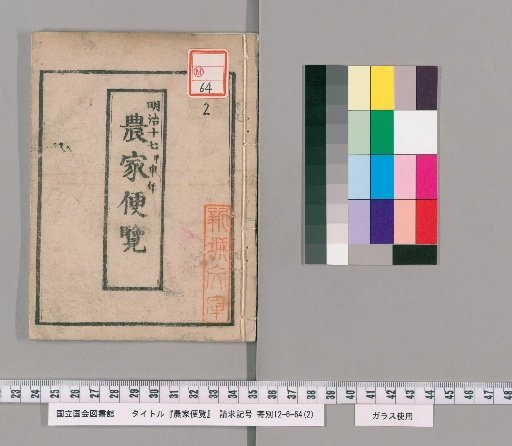 明治十七甲申年
農家便覧
M
64
2
23 24 25 26 27 28 29 30 31 32 33 34 35 36 37 38 39 40 41 42 43 44 45 46 47 48
国立国会図書館 タイトル『農家便覧』 請求記号 寄別12-6-64(2)
ガラス使用